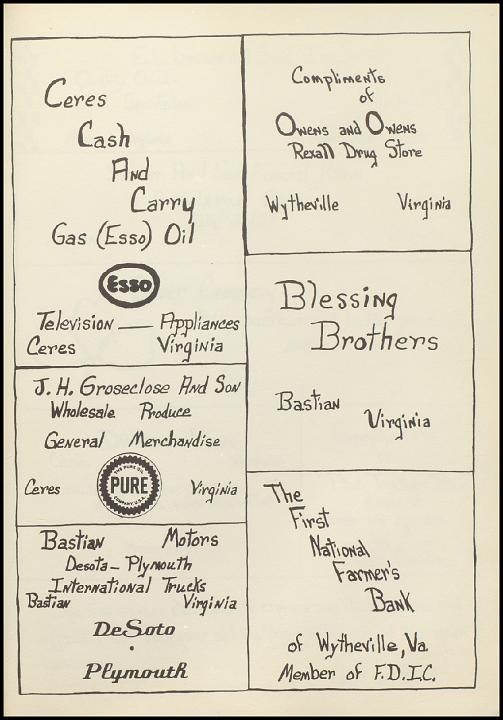 Ceres
Cash
And
Carry
Gas (Esso) Oil
Esso
Television — Appliances
Ceres Virginia
J. H. Groseclose And Son
Wholesale Produce
General Merchandise
THE PURE OIL
PURE
COMPANY, U.S.A.
Ceres Virginia
Bastian Motors
Desota - Plymouth
International Trucks
Bastian Virginia
DeSoto
.
Plymouth
Compliments
of
Owens and Owens
Rexall Drug Store
Wytheville Virginia
Blessing
Brothers
Bastian
Virginia
The
First
National
Farmer's
Bank
of Wytheville, Va
Member of F.D.I.C.